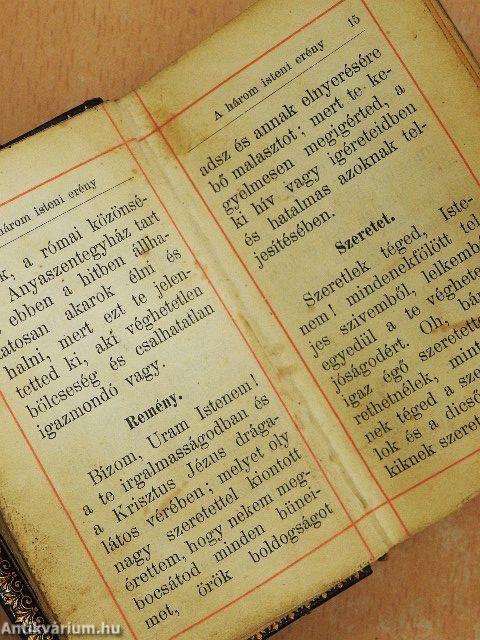 három isteni erény
k, a római közönsé-
Anyaszentegyház tart
ebben a hitben állha-
tatosan akarok élni és
halni, mert ezt te jelen-
tetted ki, aki véghetetlen
bölcseség és csalhatatlan
igazmondó vagy.
Remény.
Bízom, Uram Istenem!
a te irgalmasságodban és
a Krisztus Jézus drága-
látos vérében; melyet oly
nagy szeretettel kiontott
érettem, hogy nekem meg-
bocsátod minden bünei-
met, örök boldogságot
A három isteni erény 15
adsz és annak elnyerésére
bő malasztot; mert te ke-
gyelmesen megigérted, a
ki hív vagy igéreteidben
és hatalmas azoknak tel-
jesítésében.
Szeretet.
Szeretlek téged, Iste-
nem! mindenekfölött tel
jes szivemből, lelkemb
egyedül a te véghete
jóságodért. Oh, bá
igaz égő szeretett
rethetnélek, mint
nek téged a sze
lok és a dicső
kiknek szeret
Antikvárium.hu